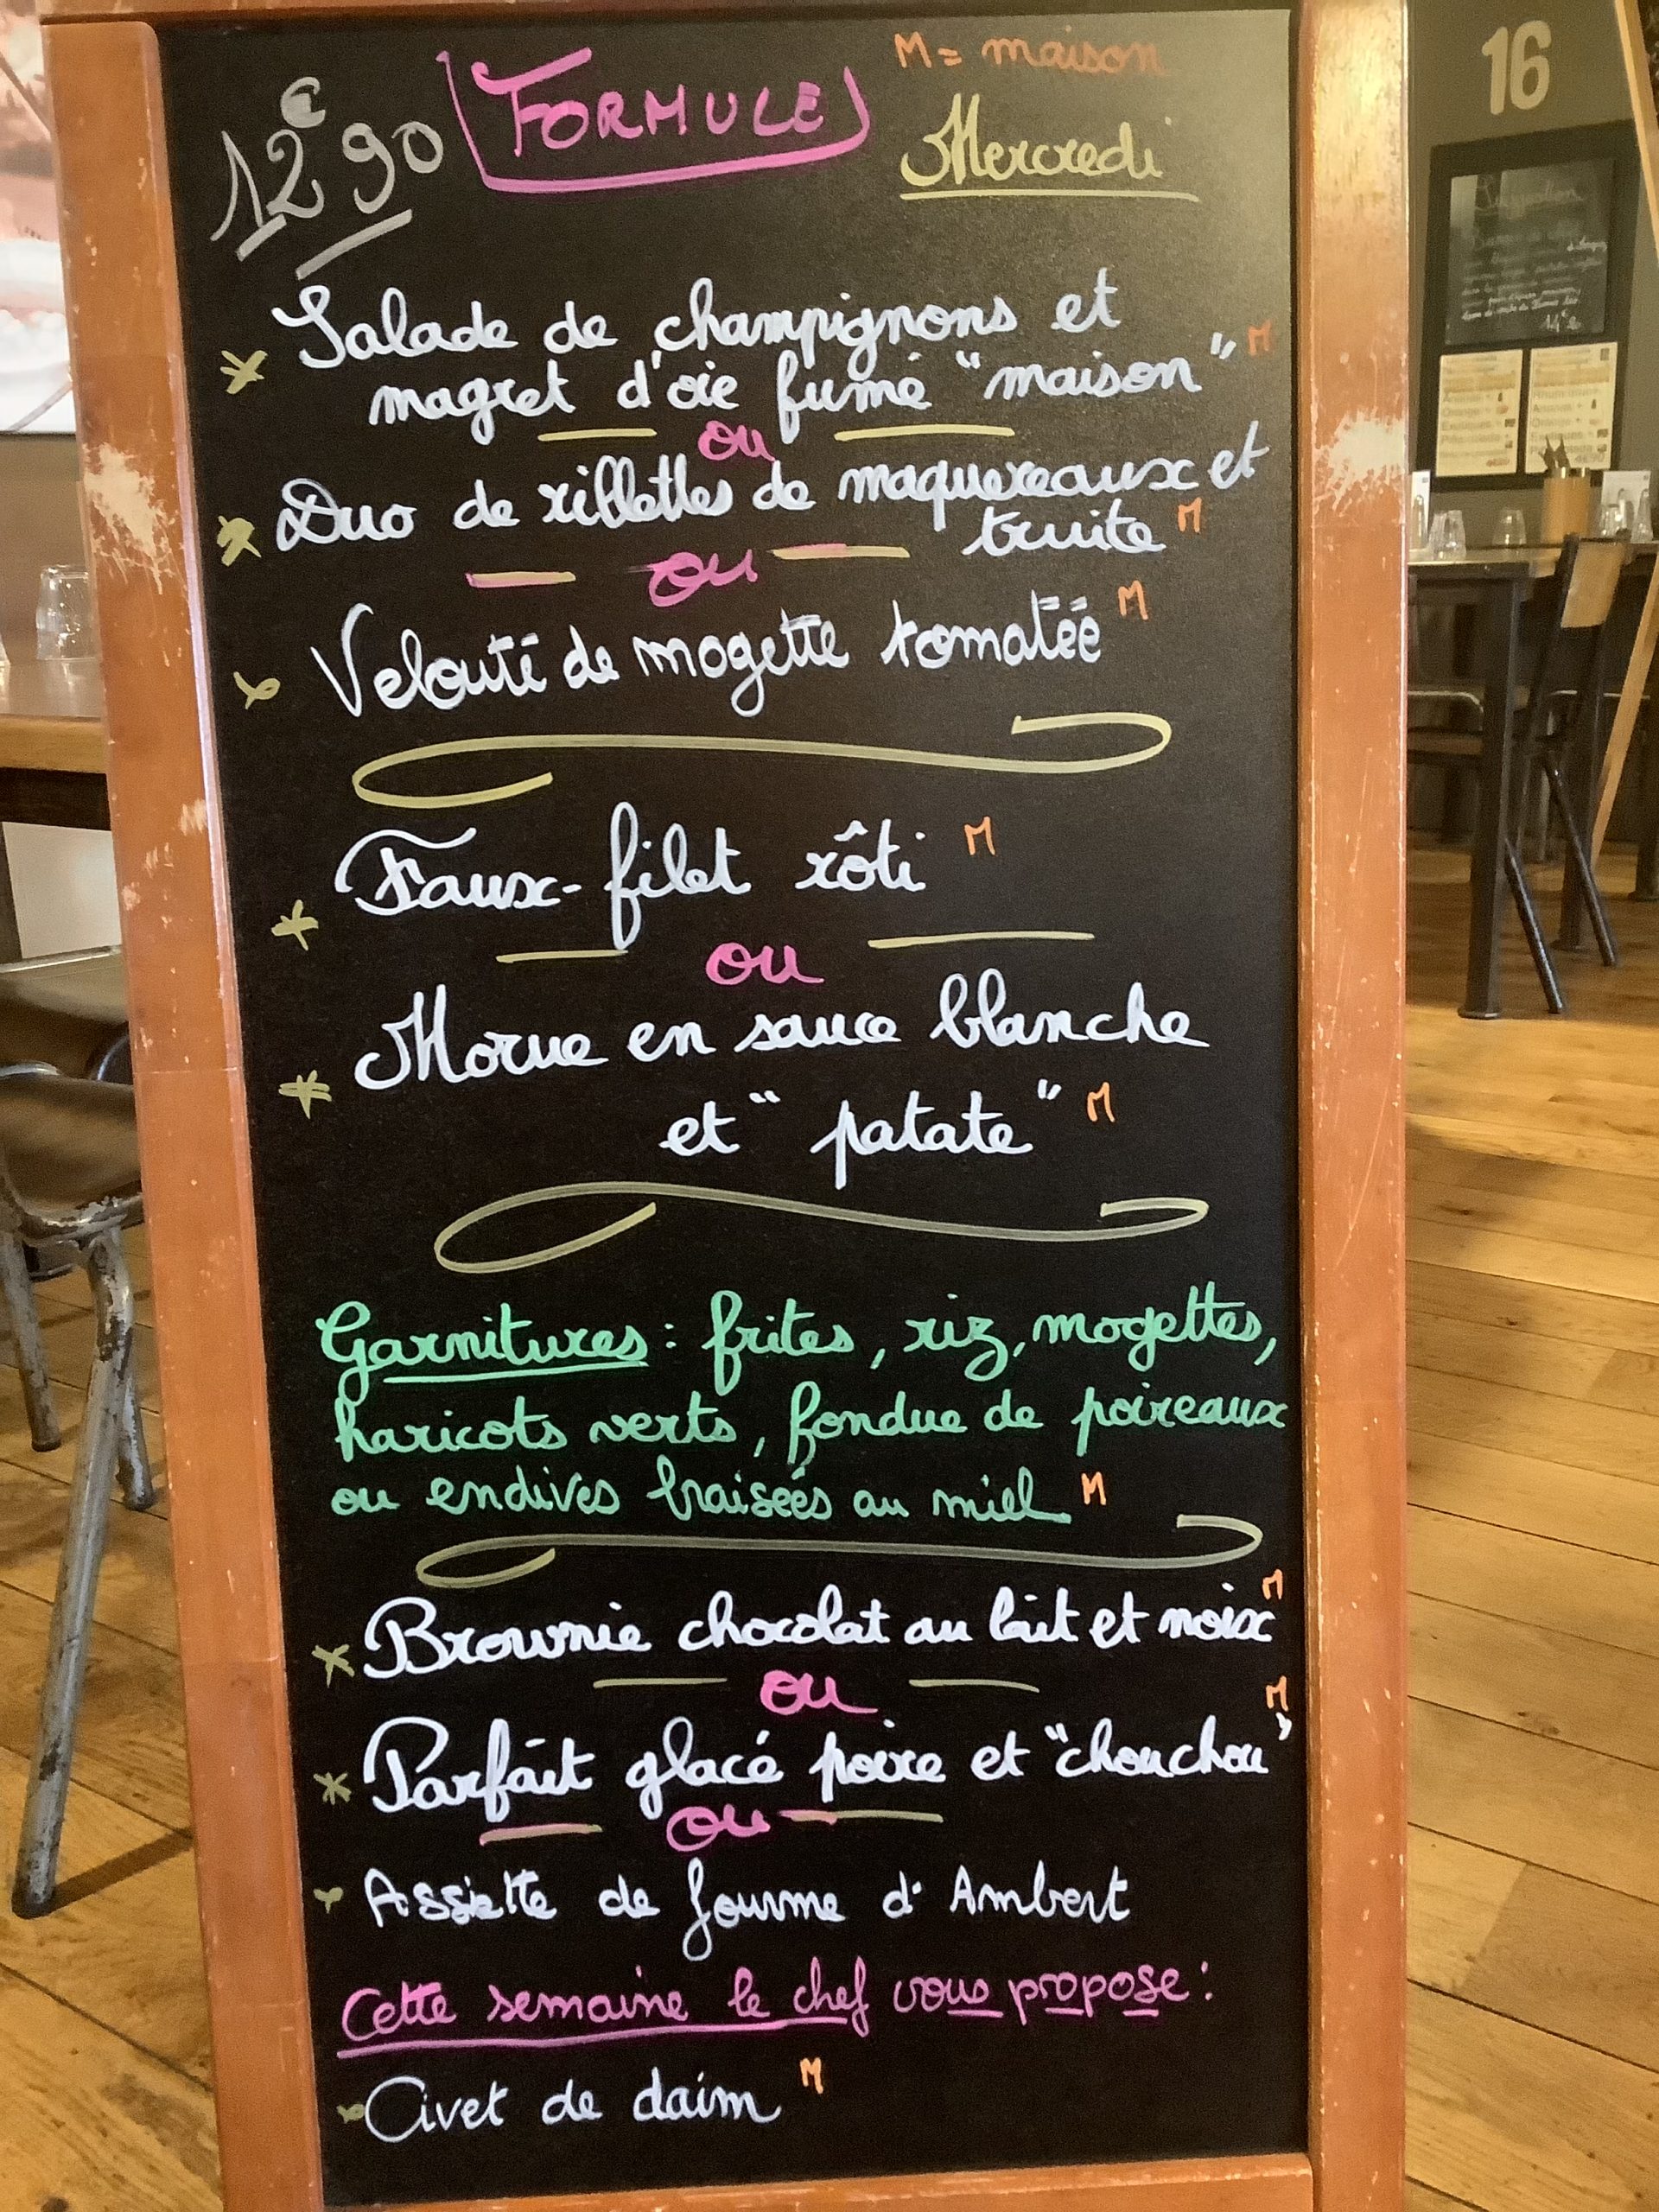 M = maison
12€90 FORMULE
Mercredi
Salade de champignons et
magret d'oie fumé "maison" M
ou
Duo de rillettes de maquereaux et
truite M
ou
Velouté de mogette tomatéé M
Faux-filet rôti M
ou
Morue en sauce blanche
et "patate" M
Garnitures : frites, riz, mogettes,
haricots verts, fondue de poireaux
ou endives braisées au miel M
Brownie chocolat au lait et noix M
ou
Parfait glacé poire et "chouchou" M
ou
Assiette de fourme d'Ambert
Cette semaine le chef vous propose :
Civet de daim M
16